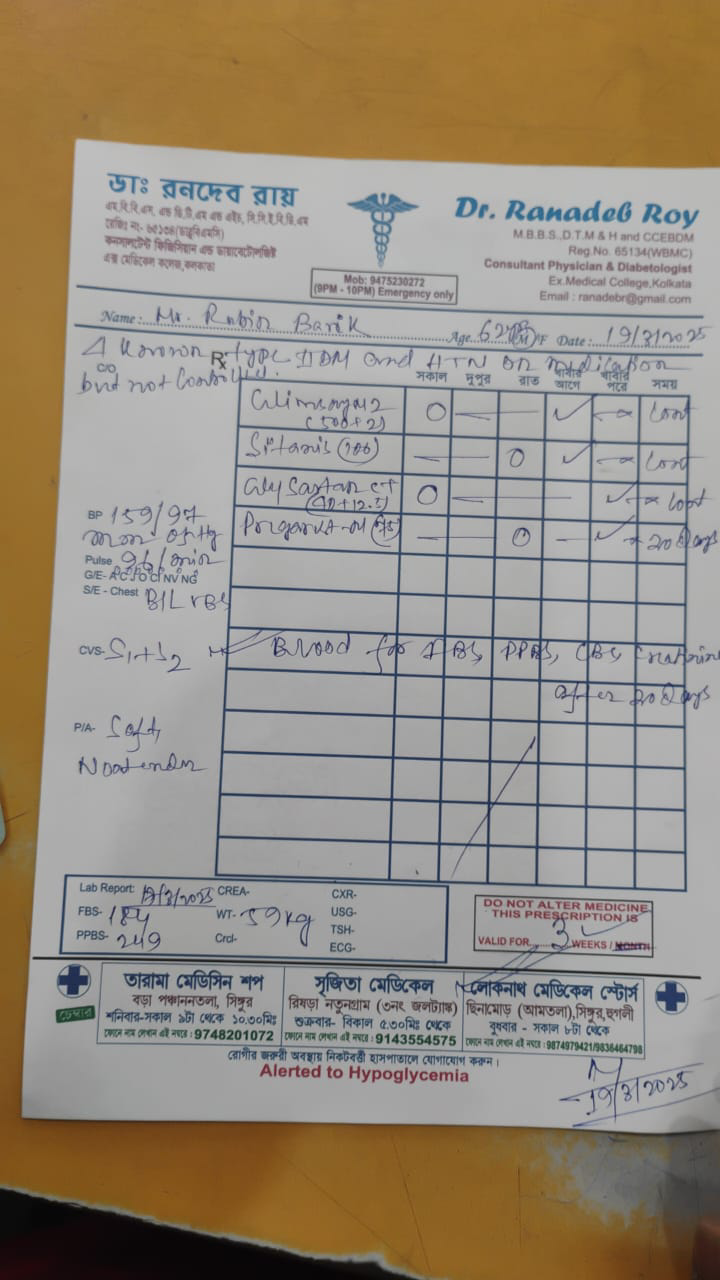 ডাঃ রনদেব রায়
এম.বি.বি.এস, এফ ডি.টি.এম এন্ড এইচ, সি.সি.ই.বি.ডি.এম
রেজিঃ নং- ৬৫১৩৪(ডব্লুবিএমসি)
কনসালটেন্ট ফিজিসিয়ান এন্ড ডায়াবেটোলজিষ্ট
এক্স মেডিকেল কলেজ,কলকাতা
Mob: 9475230272
(9PM - 10PM) Emergency only
Dr. Ranadeb Roy
M.B.B.S.,D.T.M & H and CCEBDM
Reg.No. 65134(WBMC)
Consultant Physician & Diabetologist
Ex.Medical College,Kolkata
Email : ranadebr@gmail.com
Name: Mr. Rabin Barik Age 62 M/F Date: 19/3/2025
A known type II DM and HTN on medication
C/O Rx
but not Controlled.
সকাল দুপুর রাত খাবার আগে খাবার পরে সময়
(500+2) O — ✓ Cont
Sitanis (100) — O ✓ Cont
(40+12.5) O — ✓ Cont
— O — ✓ 20 Days
BP 159/97
mm of Hg
Pulse 96/min
G/E- A C J O Cl NV NG
S/E - Chest B/L VBS
CVS- S1+S2
Blood for FBS, PPBS, CBS, Creatinin
after 20 Days
P/A- Soft,
Nontender
Lab Report: /3/2025 CREA- CXR-
FBS- 184 WT- 59kg USG-
PPBS- 249 Crcl- TSH-
ECG-
DO NOT ALTER MEDICINE
THIS PRESCRIPTION IS
VALID FOR 3 WEEKS / MONTH
চেম্বার
তারামা মেডিসিন শপ
বড়া পঞ্চাননতলা, সিঙ্গুর
শনিবার-সকাল ৯টা থেকে ১০.৩০মিঃ
ফোনে নাম লেখান এই নম্বরে : 9748201072
সুজিতা মেডিকেল
রিষড়া নতুনগ্রাম (৩নং জলট্যাঙ্ক)
শুক্রবার- বিকাল ৫.৩০মিঃ থেকে
ফোনে নাম লেখান এই নম্বরে : 9143554575
লোকনাথ মেডিকেল স্টোর্স
ছিনামোড় (আমতলা),সিঙ্গুর,হুগলী
বুধবার - সকাল ৮টা থেকে
ফোনে নাম লেখান এই নম্বরে : 9874979421/9836464798
রোগীর জরুরী অবস্থায় নিকটবর্তী হাসপাতালে যোগাযোগ করুন।
Alerted to Hypoglycemia
19/3/2025